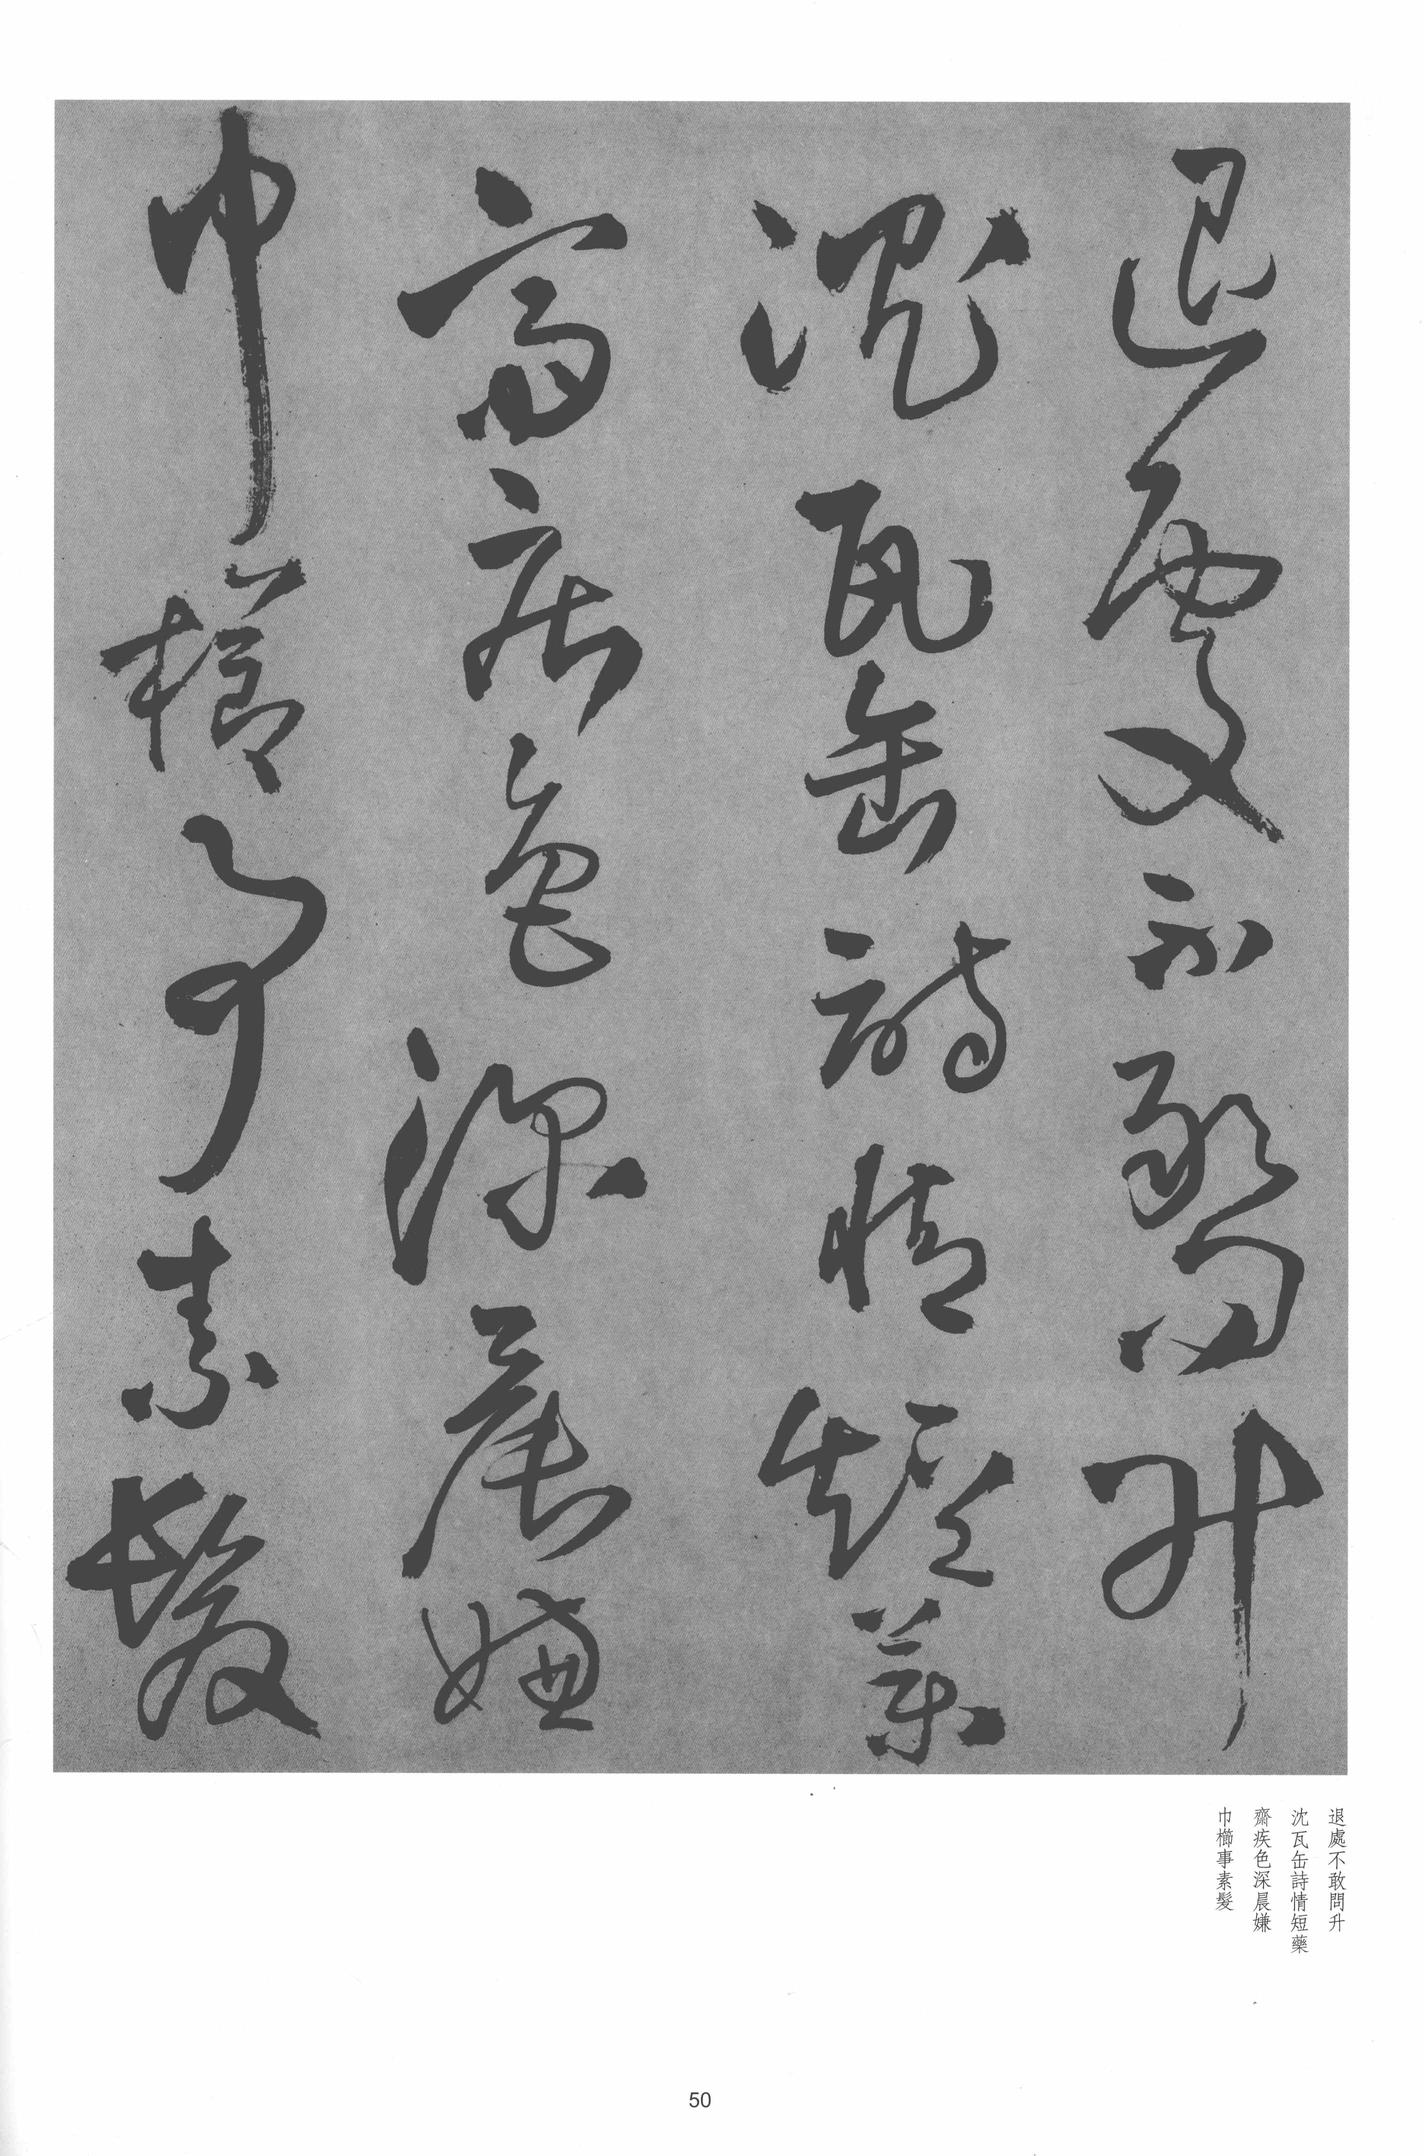 退處不敢問升
沈瓦缶詩情短藥
齋疾色深晨嫌
巾櫛事素髮
退處不敢問升
沈瓦缶詩情短藥
齋疾色深晨嫌
巾櫛事素髮
50